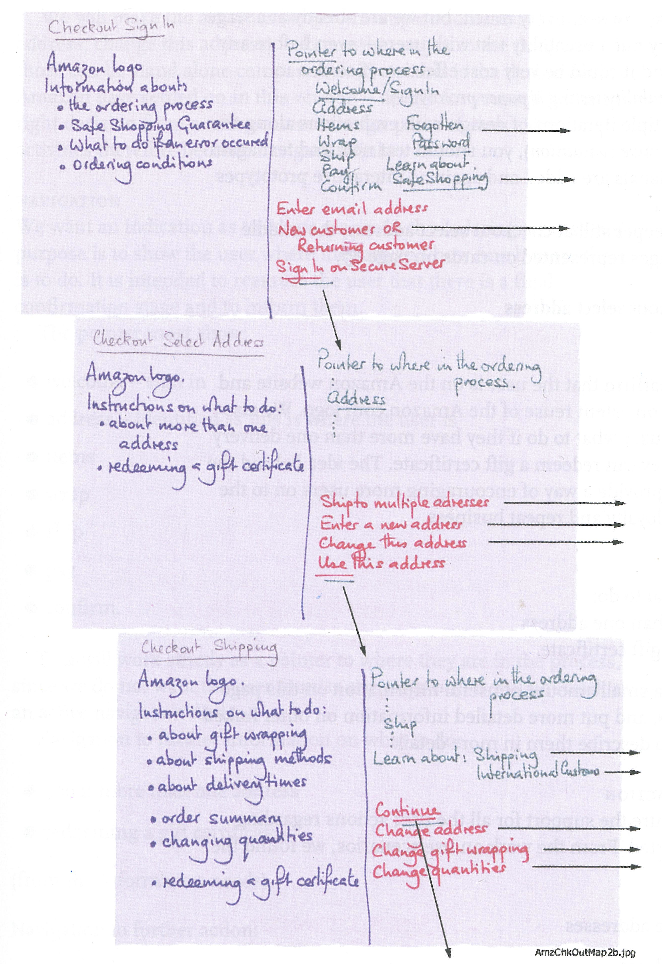 Checkout Sign In
Amazon logo
Information about:
• the ordering process
• Safe Shopping Guarantee
• What to do if an error occured
• Ordering conditions
Pointer to where in the
ordering process.
Welcome/Sign In
Address
Items
Wrap
Ship
Pay
Confirm
Forgotten
Password
Learn about.
Safe Shopping
Enter email address
New customer OR
Returning customer
Sign In on Secure Server
Checkout Select Address
Amazon logo.
Instructions on what to do:
• about more than one
address
• redeeming a gift certificate
Pointer to where in the ordering
process.
Address
Ship to multiple adresses
Enter a new address
Change this address
Use this address
Checkout Shipping
Amazon logo.
Instructions on what to do:
• about gift wrapping
• about shipping methods
• about delivery times
• order summary
• changing quantities
• redeeming a gift certificate
Pointer to where in the ordering
process
Ship
Learn about: Shipping
International Customs
Continue
Change address
Change gift wrapping
Change quantities
AmzChkOutMap2b.jpg